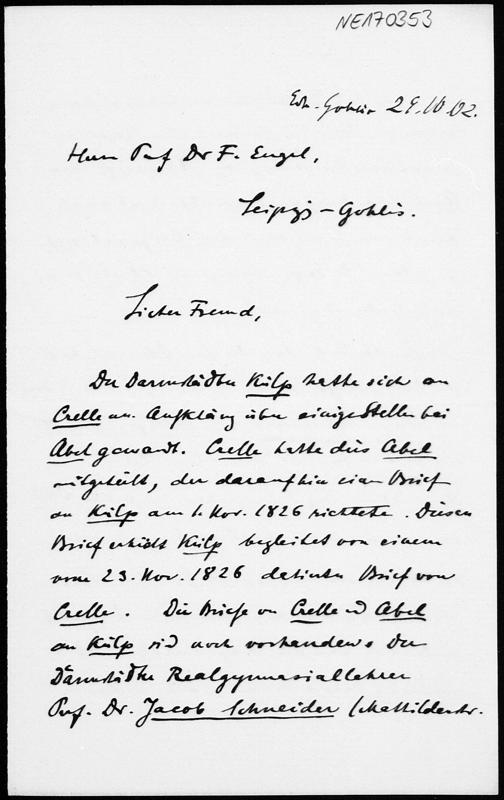 NE170353
Gohlis 29.10.02.
Herrn Prof Dr F. Engel,
Leipzig-Gohlis.
Lieber Freund,
Der Darmstädter Külp hatte sich an
Crelle um Aufklärung über einige Stellen bei
Abel gewandt. Crelle hatte dies Abel
mitgeteilt, der daraufhin einen Brief
an Külp am 1. Nov. 1826 richtete. Diesen
Brief erhielt Külp begleitet von einem
vom 23. Nov. 1826 datirten Brief von
Crelle. Die Briefe von Crelle und Abel
an Külp sind noch vorhanden. Der
Darmstädter Realgymnasiallehrer
Prof. Dr. Jacob Schneider (Mathildenstr.